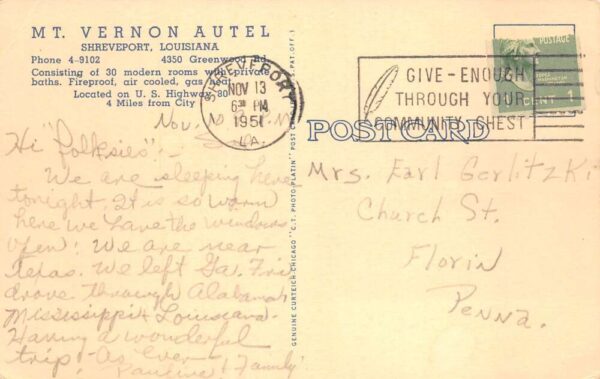 MT. VERNON AUTEL
SHREVEPORT, LOUISIANA
Phone 4-9102 4350 Greenwood Rd.
Consisting of 30 modern rooms with private
baths. Fireproof, air cooled, gas heat.
Located on U. S. Highway 80
4 Miles from City
SHREVEPORT
NOV 13
6 PM
1951
LA.
GIVE-ENOUGH
THROUGH YOUR
COMMUNITY CHEST
POSTAGE
CENT 1
POST CARD
Nov.
Hi "folksies":-
We are sleeping here
tonight. It is so warm
here we have the windows
open! We are near
Texas. We left Ga. Fri
drove through Alabama
Mississippi & Louisiana.
Having a wonderful
trip. As Ever
Pauline & Family
GENUINE CURTEICH-CHICAGO "C.T. PHOTO-PLATIN" POST CARD (REG. U.S. PAT. OFF.)
Mrs. Earl Gerlitzki
Church St.
Florin
Penna.